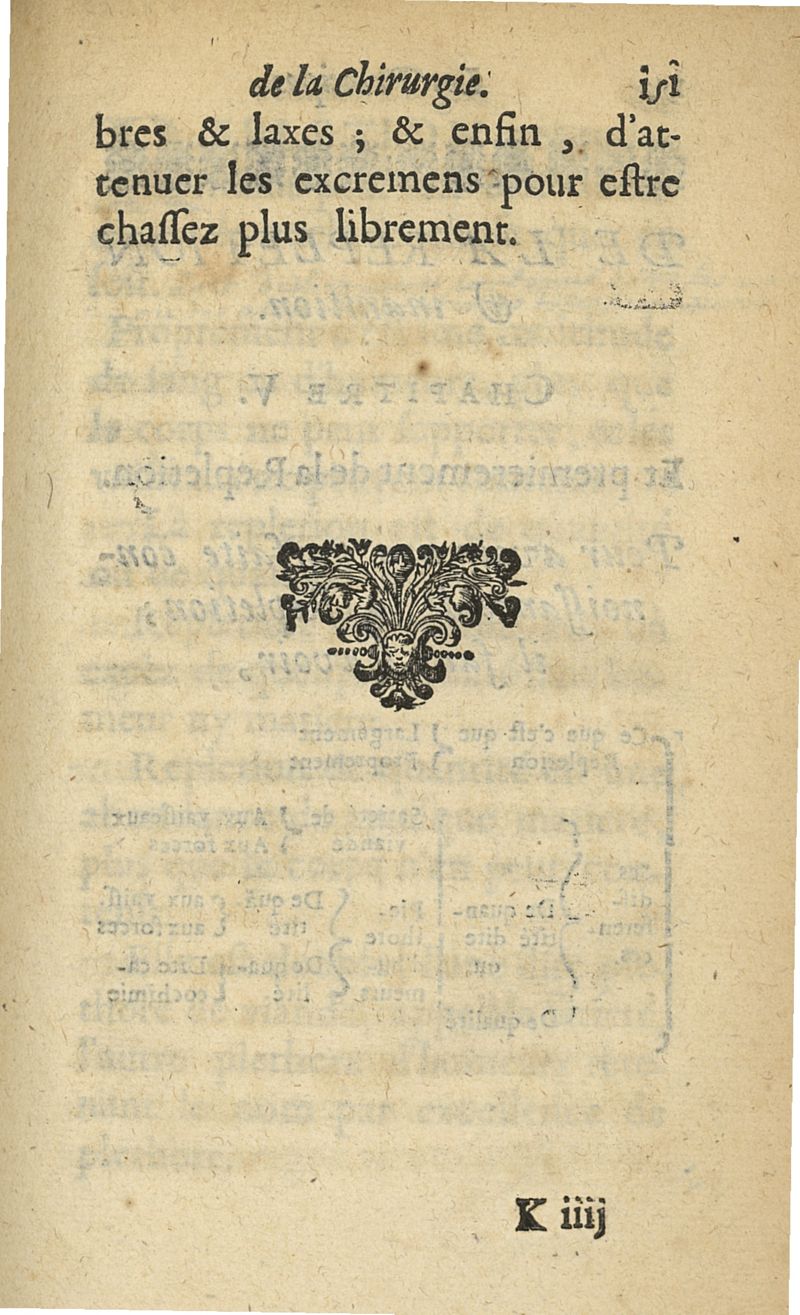 de la Chirurgie. 151
bres & laxes ; & enfin , d'at-
tenuer les excremens pour eſtre
chaſſez plus librement.
K iiij